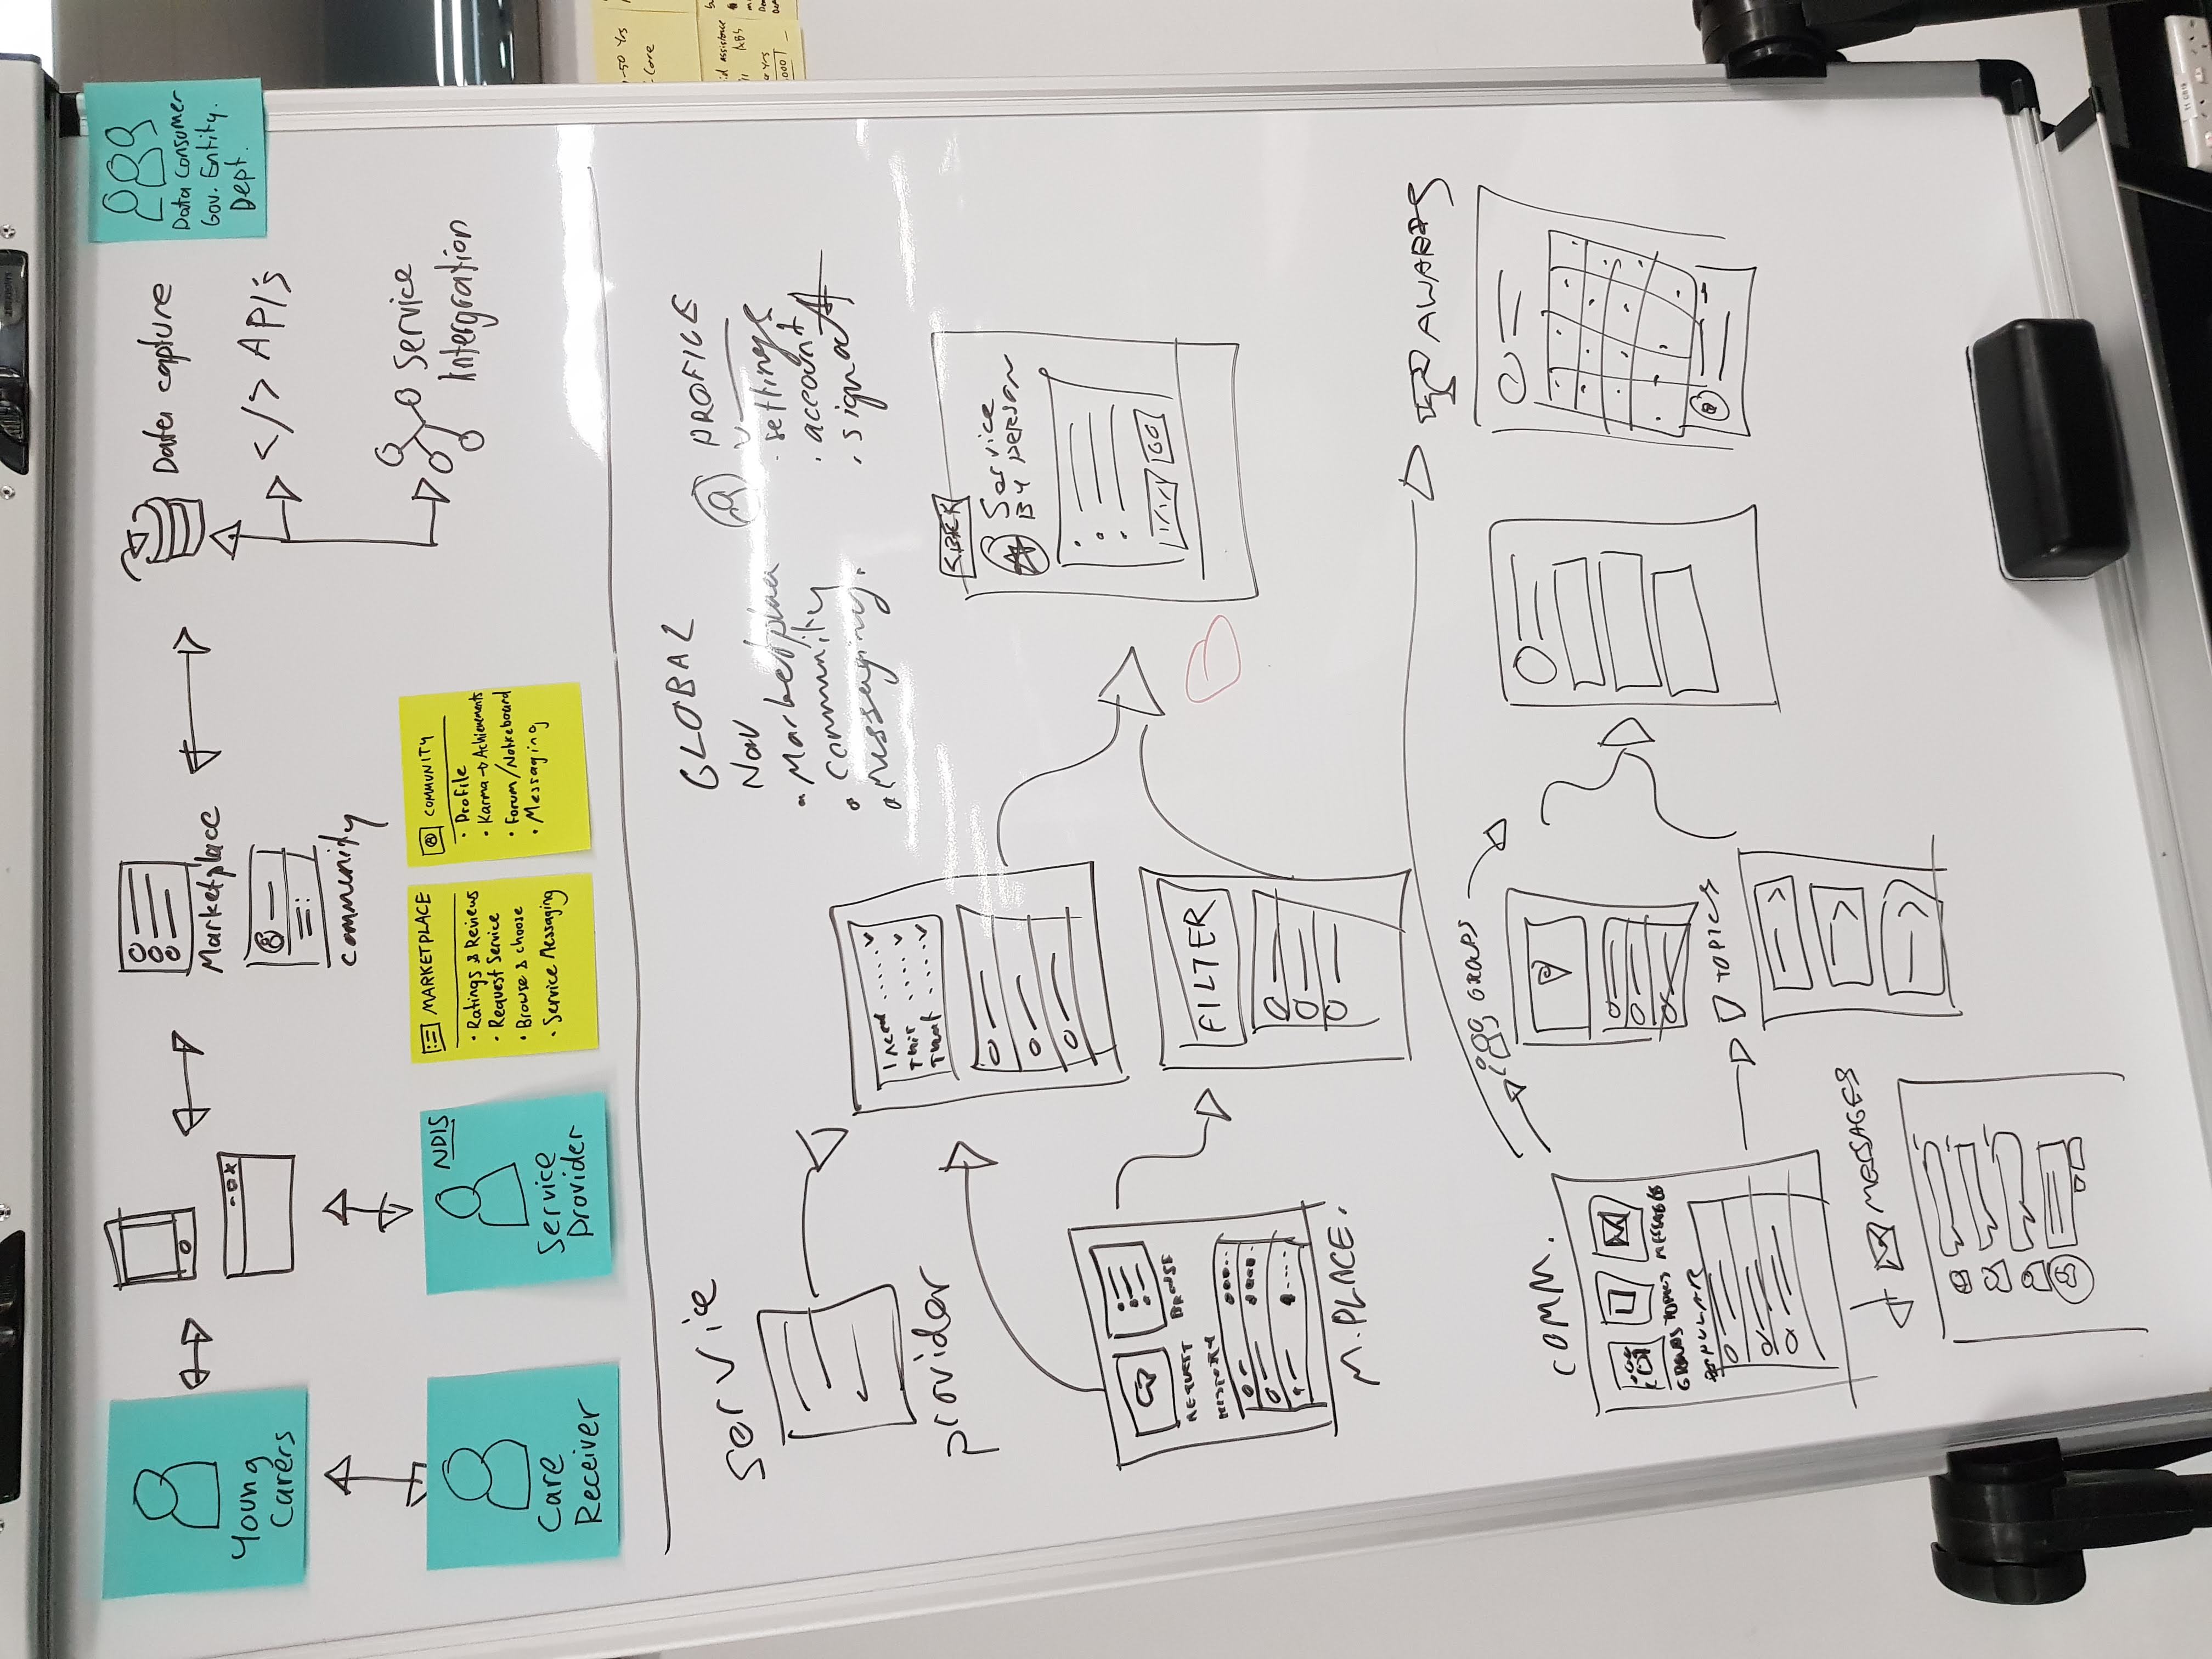 Young
Carers
Marketplace
Community
Data capture
</> API's
Service
Intergration
Data Consumer
Gov. Entity.
Dept.
Care
Receiver
NDIS
Service
Provider
MARKETPLACE
• Ratings & Reviews
• Request Service
• Browse & choose
• Service Messaging
COMMUNITY
• Profile
• Karma → Achievements
• Forum/Noticeboard
• Messaging
-50 Yrs
Care
assistance
ABS
Yrs
Service
provider
GLOBAL
Nav
• Marketplaa
• Community
• Messaging.
PROFILE
• settings
• account
• signout
I need ..... ✓
This .... ✓
That .... ✓
<BACK
Service
BY person
GO
REQUEST
BROWSE
HISTORY
M.PLACE.
FILTER
AWARDS
GROUPS
COMM.
GROUPS TOPICS MESSAGES
POPULAR
TOPICS
MESSAGES